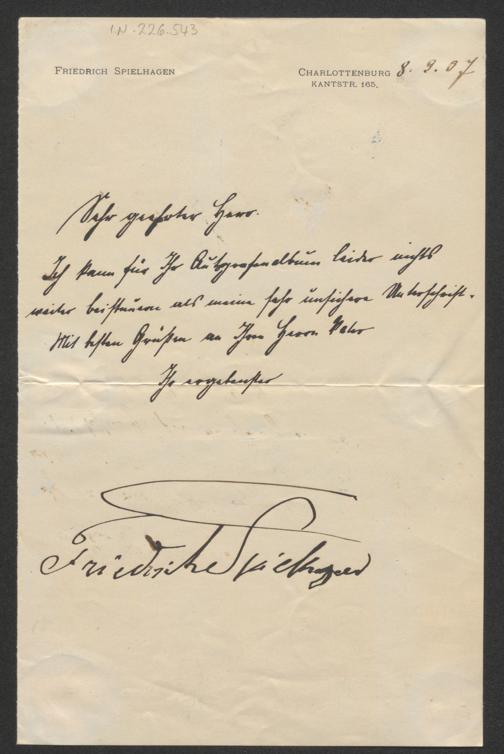 I.N. 226.543
FRIEDRICH SPIELHAGEN
CHARLOTTENBURG 8. 9. 07
KANTSTR. 165.
Sehr geehrter Herr.
Ich kann für Ihr Autografenalbum leider nichts
weiter beisteuern als meine sehr unsichere Unterschrift.
Mit besten Grüßen an Ihren Herrn Vater
Ihr ergebenster
Friedrich Spielhagen